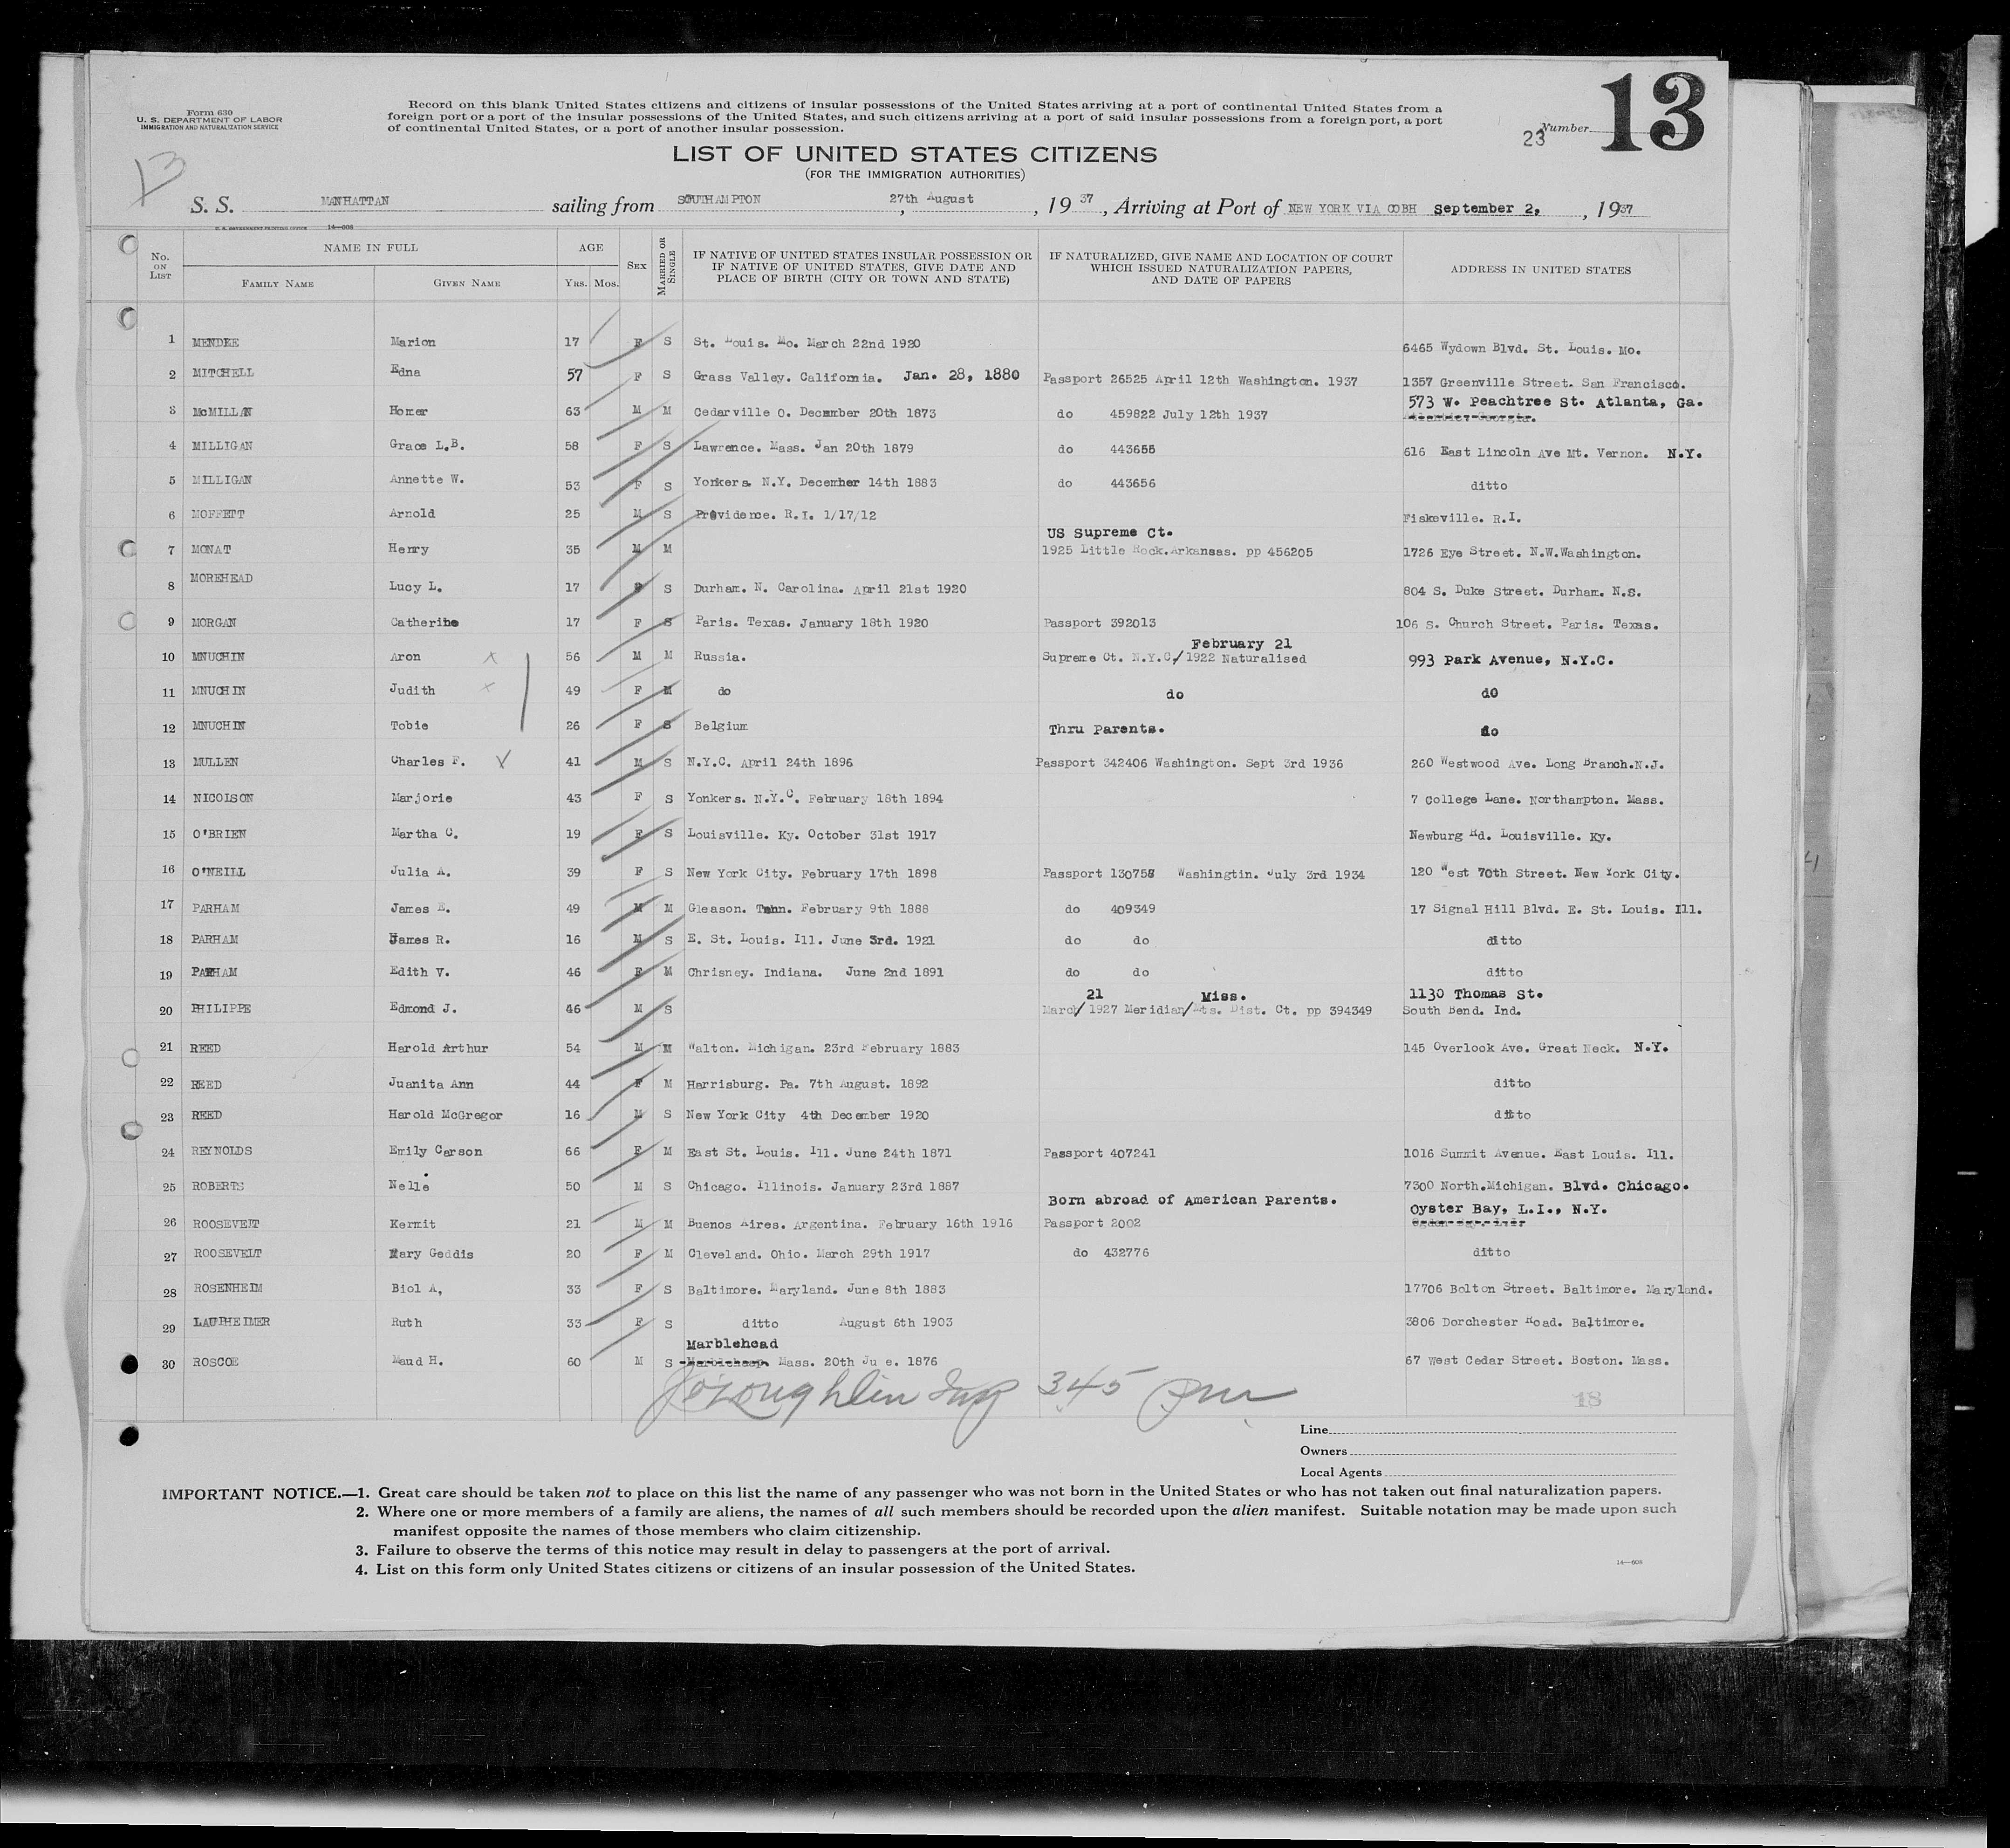 13
Form 630
U. S. DEPARTMENT OF LABOR
IMMIGRATION AND NATURALIZATION SERVICE
Record on this blank United States citizens and citizens of insular possessions of the United States arriving at a port of continental United States from a
foreign port or a port of the insular possessions of the United States, and such citizens arriving at a port of said insular possessions from a foreign port, a port
of continental United States, or a port of another insular possession.
23 Number
13
LIST OF UNITED STATES CITIZENS
(FOR THE IMMIGRATION AUTHORITIES)
S. S. MANHATTAN sailing from SOUTHAMPTON, 27th August, 1937, Arriving at Port of NEW YORK VIA COBH September 2, 1937
U. S. GOVERNMENT PRINTING OFFICE 14—608
No. ON LIST NAME IN FULL FAMILY NAME GIVEN NAME AGE YRS. MOS. SEX MARRIED OR SINGLE IF NATIVE OF UNITED STATES INSULAR POSSESSION OR IF NATIVE OF UNITED STATES, GIVE DATE AND PLACE OF BIRTH (CITY OR TOWN AND STATE) IF NATURALIZED, GIVE NAME AND LOCATION OF COURT WHICH ISSUED NATURALIZATION PAPERS, AND DATE OF PAPERS ADDRESS IN UNITED STATES
1 MENDLE Marion 17 F S St. Louis. Mo. March 22nd 1920 6465 Wydown Blvd. St. Louis. Mo.
2 MITCHELL Edna 57 F S Grass Valley. California. Jan. 28, 1880 Passport 26525 April 12th Washington. 1937 1357 Greenville Street. San Francisco.
573 W. Peachtree St. Atlanta, Ga.
3 McMILLAN Homer 63 M M Cedarville O. December 20th 1873 do 459822 July 12th 1937
4 MILLIGAN Grace L.B. 58 F S Lawrence. Mass. Jan 20th 1879 do 443655 616 East Lincoln Ave Mt. Vernon. N.Y.
5 MILLIGAN Annette W. 53 F S Yonkers. N.Y. December 14th 1883 do 443656 ditto
6 MOFFETT Arnold 25 M S Providence. R.I. 1/17/12 Fiskeville. R.I.
US Supreme Ct.
7 MONAT Henry 35 M M 1925 Little Rock.Arkansas. pp 456205 1726 Eye Street. N.W.Washington.
8 MOREHEAD Lucy L. 17 F S Durham. N. Carolina. April 21st 1920 804 S. Duke Street. Durham. N.S.
9 MORGAN Catherine 17 F S Paris. Texas. January 18th 1920 Passport 392013 106 S. Church Street. Paris. Texas.
February 21
10 MNUCHIN Aron 56 M M Russia. Supreme Ct. N.Y.C/1922 Naturalised 993 Park Avenue, N.Y.C.
11 MNUCHIN Judith 49 F M do do do
12 MNUCHIN Tobie 26 F S Belgium Thru Parents. do
13 MULLEN Charles F. 41 M S N.Y.C. April 24th 1896 Passport 342406 Washington. Sept 3rd 1936 260 Westwood Ave. Long Branch.N.J.
14 NICOLSON Marjorie 43 F S Yonkers. N.Y.C. February 18th 1894 7 College Lane. Northampton. Mass.
15 O'BRIEN Martha C. 19 F S Louisville. Ky. October 31st 1917 Newburg Rd. Louisville. Ky.
16 O'NEILL Julia A. 39 F S New York City. February 17th 1898 Passport 130758 Washingtin. July 3rd 1934 120 West 70th Street. New York City.
17 PARHAM James E. 49 M M Gleason. Tenn. February 9th 1888 do 409349 17 Signal Hill Blvd. E. St. Louis. Ill.
18 PARHAM James R. 16 M S E. St. Louis. Ill. June 3rd. 1921 do do ditto
19 PARHAM Edith V. 46 F M Chrisney. Indiana. June 2nd 1891 do do ditto
21 Miss. 1130 Thomas St.
20 PHILIPPE Edmond J. 46 M S March/ 1927 Meridian/ Dist. Ct. pp 394349 South Bend. Ind.
21 REED Harold Arthur 54 M M Walton. Michigan. 23rd February 1883 145 Overlook Ave. Great Neck. N.Y.
22 REED Juanita Ann 44 F M Harrisburg. Pa. 7th August. 1892 ditto
23 REED Harold McGregor 16 M S New York City 4th December 1920 ditto
24 REYNOLDS Emily Carson 66 F M East St. Louis. Ill. June 24th 1871 Passport 407241 1016 Summit Avenue. East Louis. Ill.
25 ROBERTS Nelle 50 M S Chicago. Illinois. January 23rd 1887 7300 North.Michigan. Blvd. Chicago.
Born abroad of American Parents. Oyster Bay, L.I., N.Y.
26 ROOSEVELT Kermit 21 M M Buenos Aires. Argentina. February 16th 1916 Passport 2002
27 ROOSEVELT Mary Geddis 20 F M Cleveland. Ohio. March 29th 1917 do 432776 ditto
28 ROSENHEIM Biol A, 33 F S Baltimore. Maryland. June 8th 1883 17706 Bolton Street. Baltimore. Maryland.
29 LAUPHEIMER Ruth 33 F S ditto August 6th 1903 3806 Dorchester Road. Baltimore.
Marblehead
30 ROSCOE Maud H. 60 M S Mass. 20th Ju e. 1876 67 West Cedar Street. Boston. Mass.
J O'Loughlin Insp 345 pm
18
Line
Owners
Local Agents
IMPORTANT NOTICE.—1. Great care should be taken not to place on this list the name of any passenger who was not born in the United States or who has not taken out final naturalization papers.
2. Where one or more members of a family are aliens, the names of all such members should be recorded upon the alien manifest. Suitable notation may be made upon such
manifest opposite the names of those members who claim citizenship.
3. Failure to observe the terms of this notice may result in delay to passengers at the port of arrival.
4. List on this form only United States citizens or citizens of an insular possession of the United States.
14—608